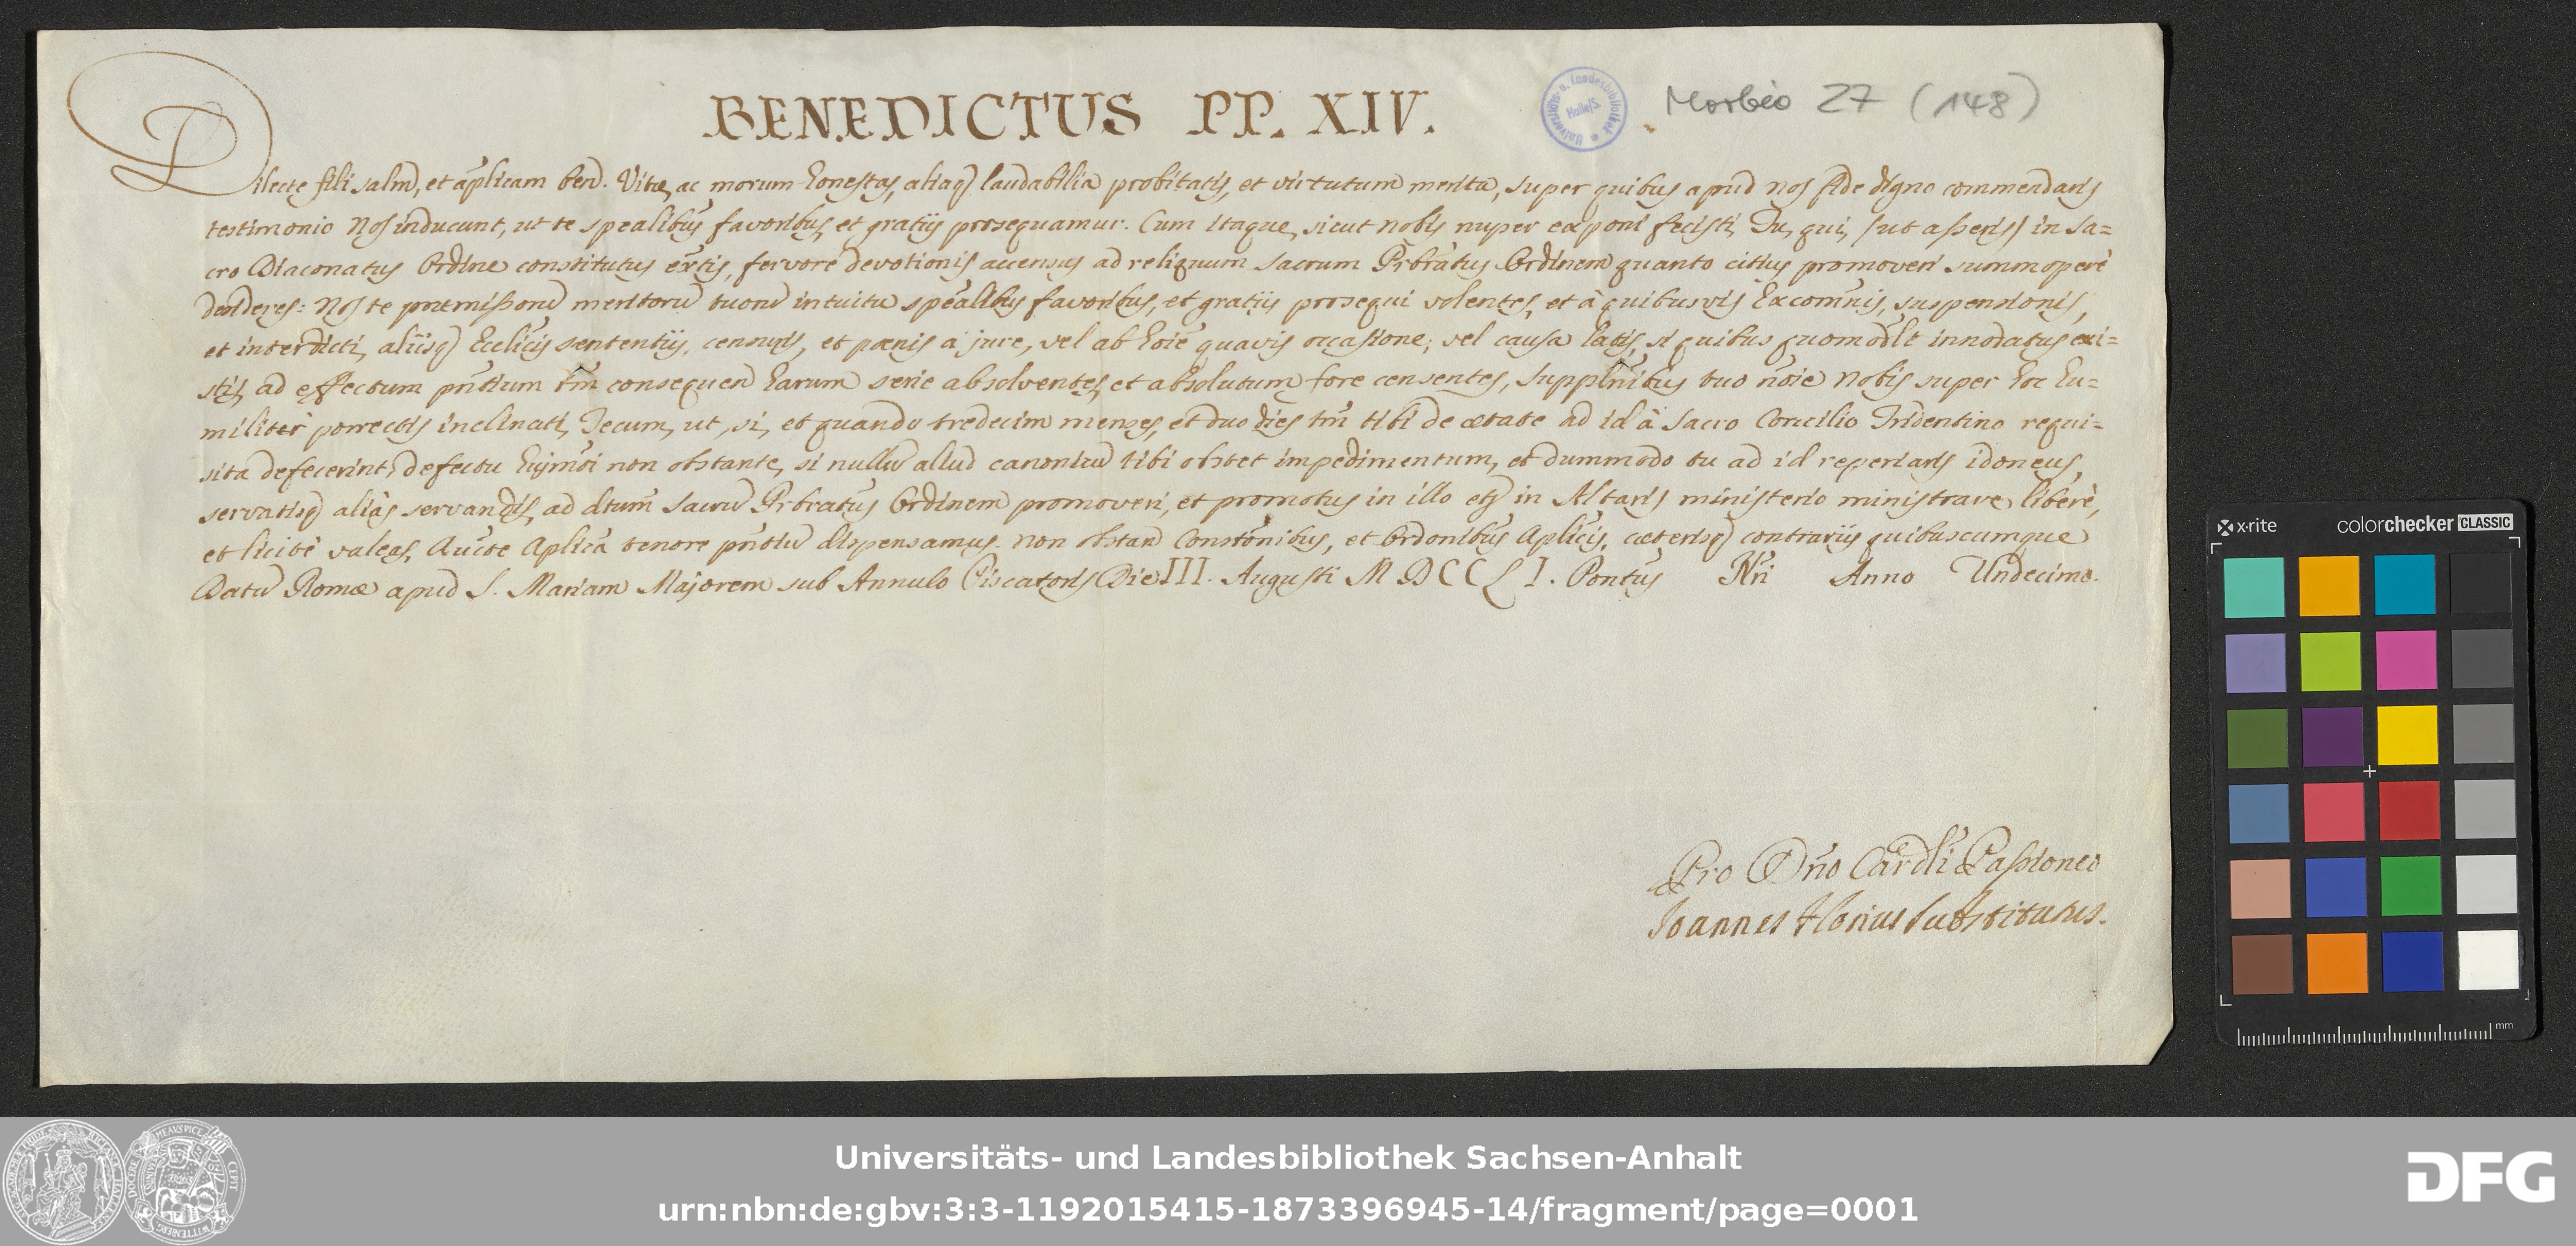 BENEDICTUS PP. XIV.
Universitäts- u. Landesbibliothek Halle/S.
Morbio 27 (148)
Dilecte fili salm̃, et ap̃licam ben̄. Vitæ, ac morum honestas, aliaq̃ laudabilia probitatis, et virtutum merita, super quibus apud nos fide digno commendaris
testimonio Nos inducunt, ut te sp̃ealibus favoribus, et gratijs prosequamur. Cum itaque, sicut nobis nuper exponi fecisti, Tu, qui, /ut asseris/ in Sa=
cro Diaconatus Ordine constitutus ex̃tis, fervore devotionis accensus ad reliquum sacrum Pr̃bratus Ordinem quanto citius promoveri summoperè
desideres: Nos te præmissorũ meritorũ tuorũ intuitu sp̃ealibus favoribus, et gratijs prosequi volentes, et à quibusvis Excom̃nis, suspensionis,
et interdicti, alijsq̃ Ecc̃licis sententijs, censuris, et pœnis a jure, vel ab ho͂ie quavis occasione, vel causa latis, si quibus quomodl̃t innodatus exi=
stis, ad effectum pñtium tm̃ consequen̄ harum serie absolventes, et absolutum fore censentes, supplñibus tuo nõie Nobis super hoc hu=
militèr porrectis inclinati, Tecum, ut, si, et quando tredecim menses, et duo dies tm̃ tibi de ætate ad id à Sacro Concilio Tridentino requi=
sita defecerint, defectu hujm̃oi non obstante, si nullũ aliud canonicũ tibi obstet impedimentum, et dummodo tu ad id reperiaris idoneus,
servatisq̃ aliàs servandis, ad dtum̃ sacrũ Pr̃bratus Ordinem promoveri, et promotus in illo et̃ in Altaris ministerio ministrare liberè,
et licitè valeas, Auc̃te Ap̃lica tenore pñtiũ dispensamus. Non obstan̄ Constõnibus, et Ordõnibus Ap̃licis, cæterisq̃ contrarijs quibuscumque
Datũ Romæ apud S. Mariam Majorem sub Annulo Piscatoris Die III. Augusti MDCCLI. Pontũs Nr̃i Anno Undecimo.
Pro Dño Card̃li Passioneo
Joannes Florius Substitutus.
x·rite colorchecker CLASSIC
mm
Universitäts- und Landesbibliothek Sachsen-Anhalt
urn:nbn:de:gbv:3:3-1192015415-1873396945-14/fragment/page=0001
DFG